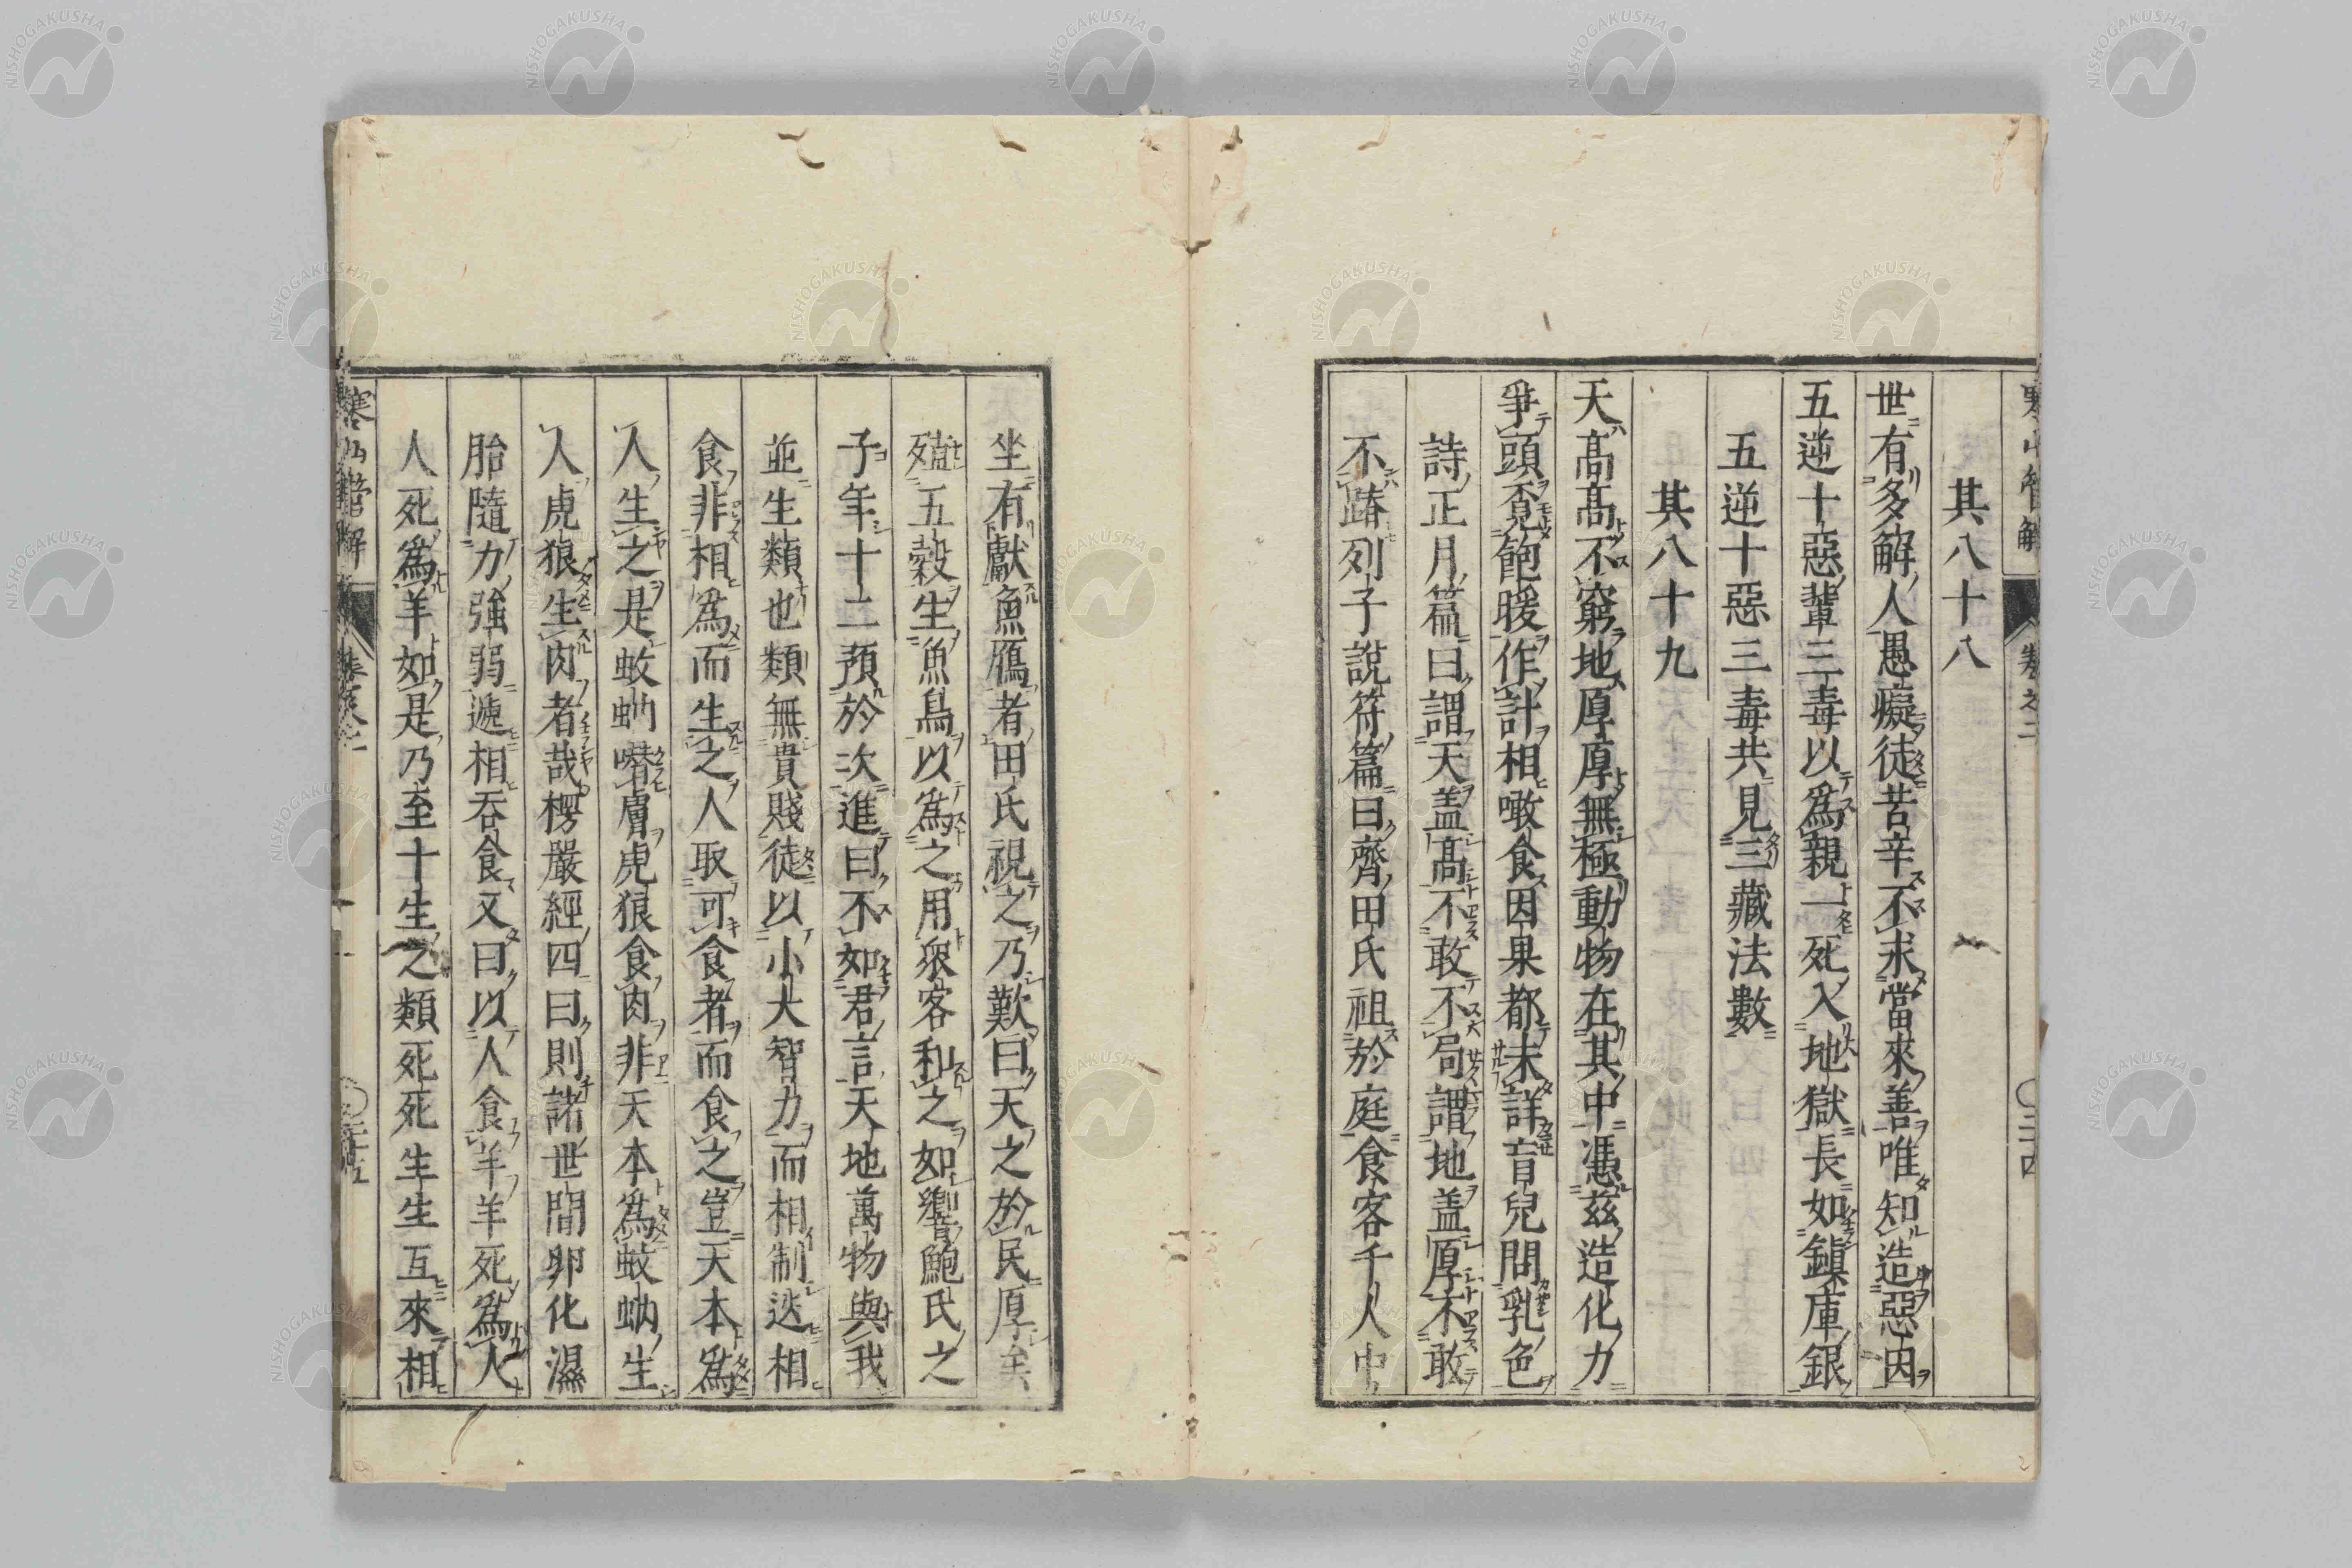 其八十八
世有多解人愚癡徒苦辛不求當來善唯知造惡因
五逆十惡輩三毒以爲親一死入地獄長如鎭庫銀
五逆十惡三毒共見三藏法數
其八十九
天髙髙不窮地厚厚無極動物在其中憑茲造化力
爭頭覔飽暖作計相噉食因果都未詳盲兒問乳色
詩正月篇曰謂天盖髙不敢不局謂地盖厚不敢
不蹐列子說符篇曰齊田氏祖於庭食客千人中
坐有獻魚鴈者田氏視之乃歎曰天之於民厚矣
殖五穀生魚鳥以爲之用衆客和之如響鮑氏之
子年十二預於次進曰不如君言天地萬物與我
並生類也類無貴賤徒以小大智力而相制迭相
食非相爲而生之人取可食者而食之豈天本爲
人生之是蚊蚋噆膚虎狼食肉非天本爲蚊蚋生
人虎狼生肉者哉楞嚴經四曰則諸世間卵化濕
胎隨力強弱遞相吞食又曰以人食羊羊死爲人
人死爲羊如是乃至十生之類死死生生互來相
寒山詩管解 卷之二
NISHOGAKUSHA